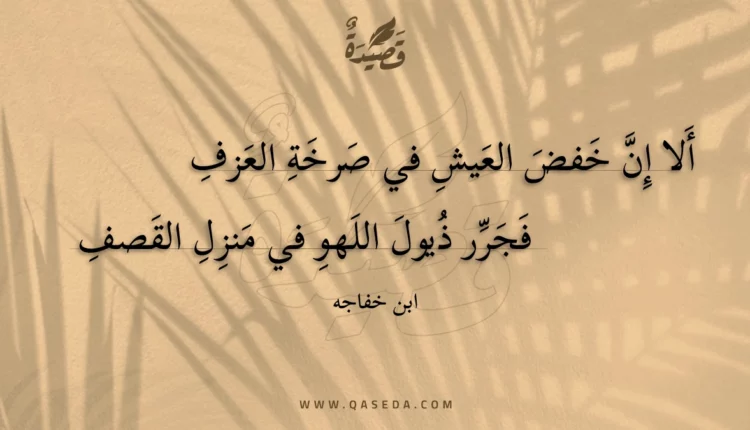 قَصِيدَةٌ
أَلا إِنَّ خَفضَ العَيشِ في صَرخَةِ العَزفِ
فَجَرِّر ذُيولَ اللَهوِ في مَنزِلِ القَصفِ
ابن خفاجه
WWW.QASEDA.COM